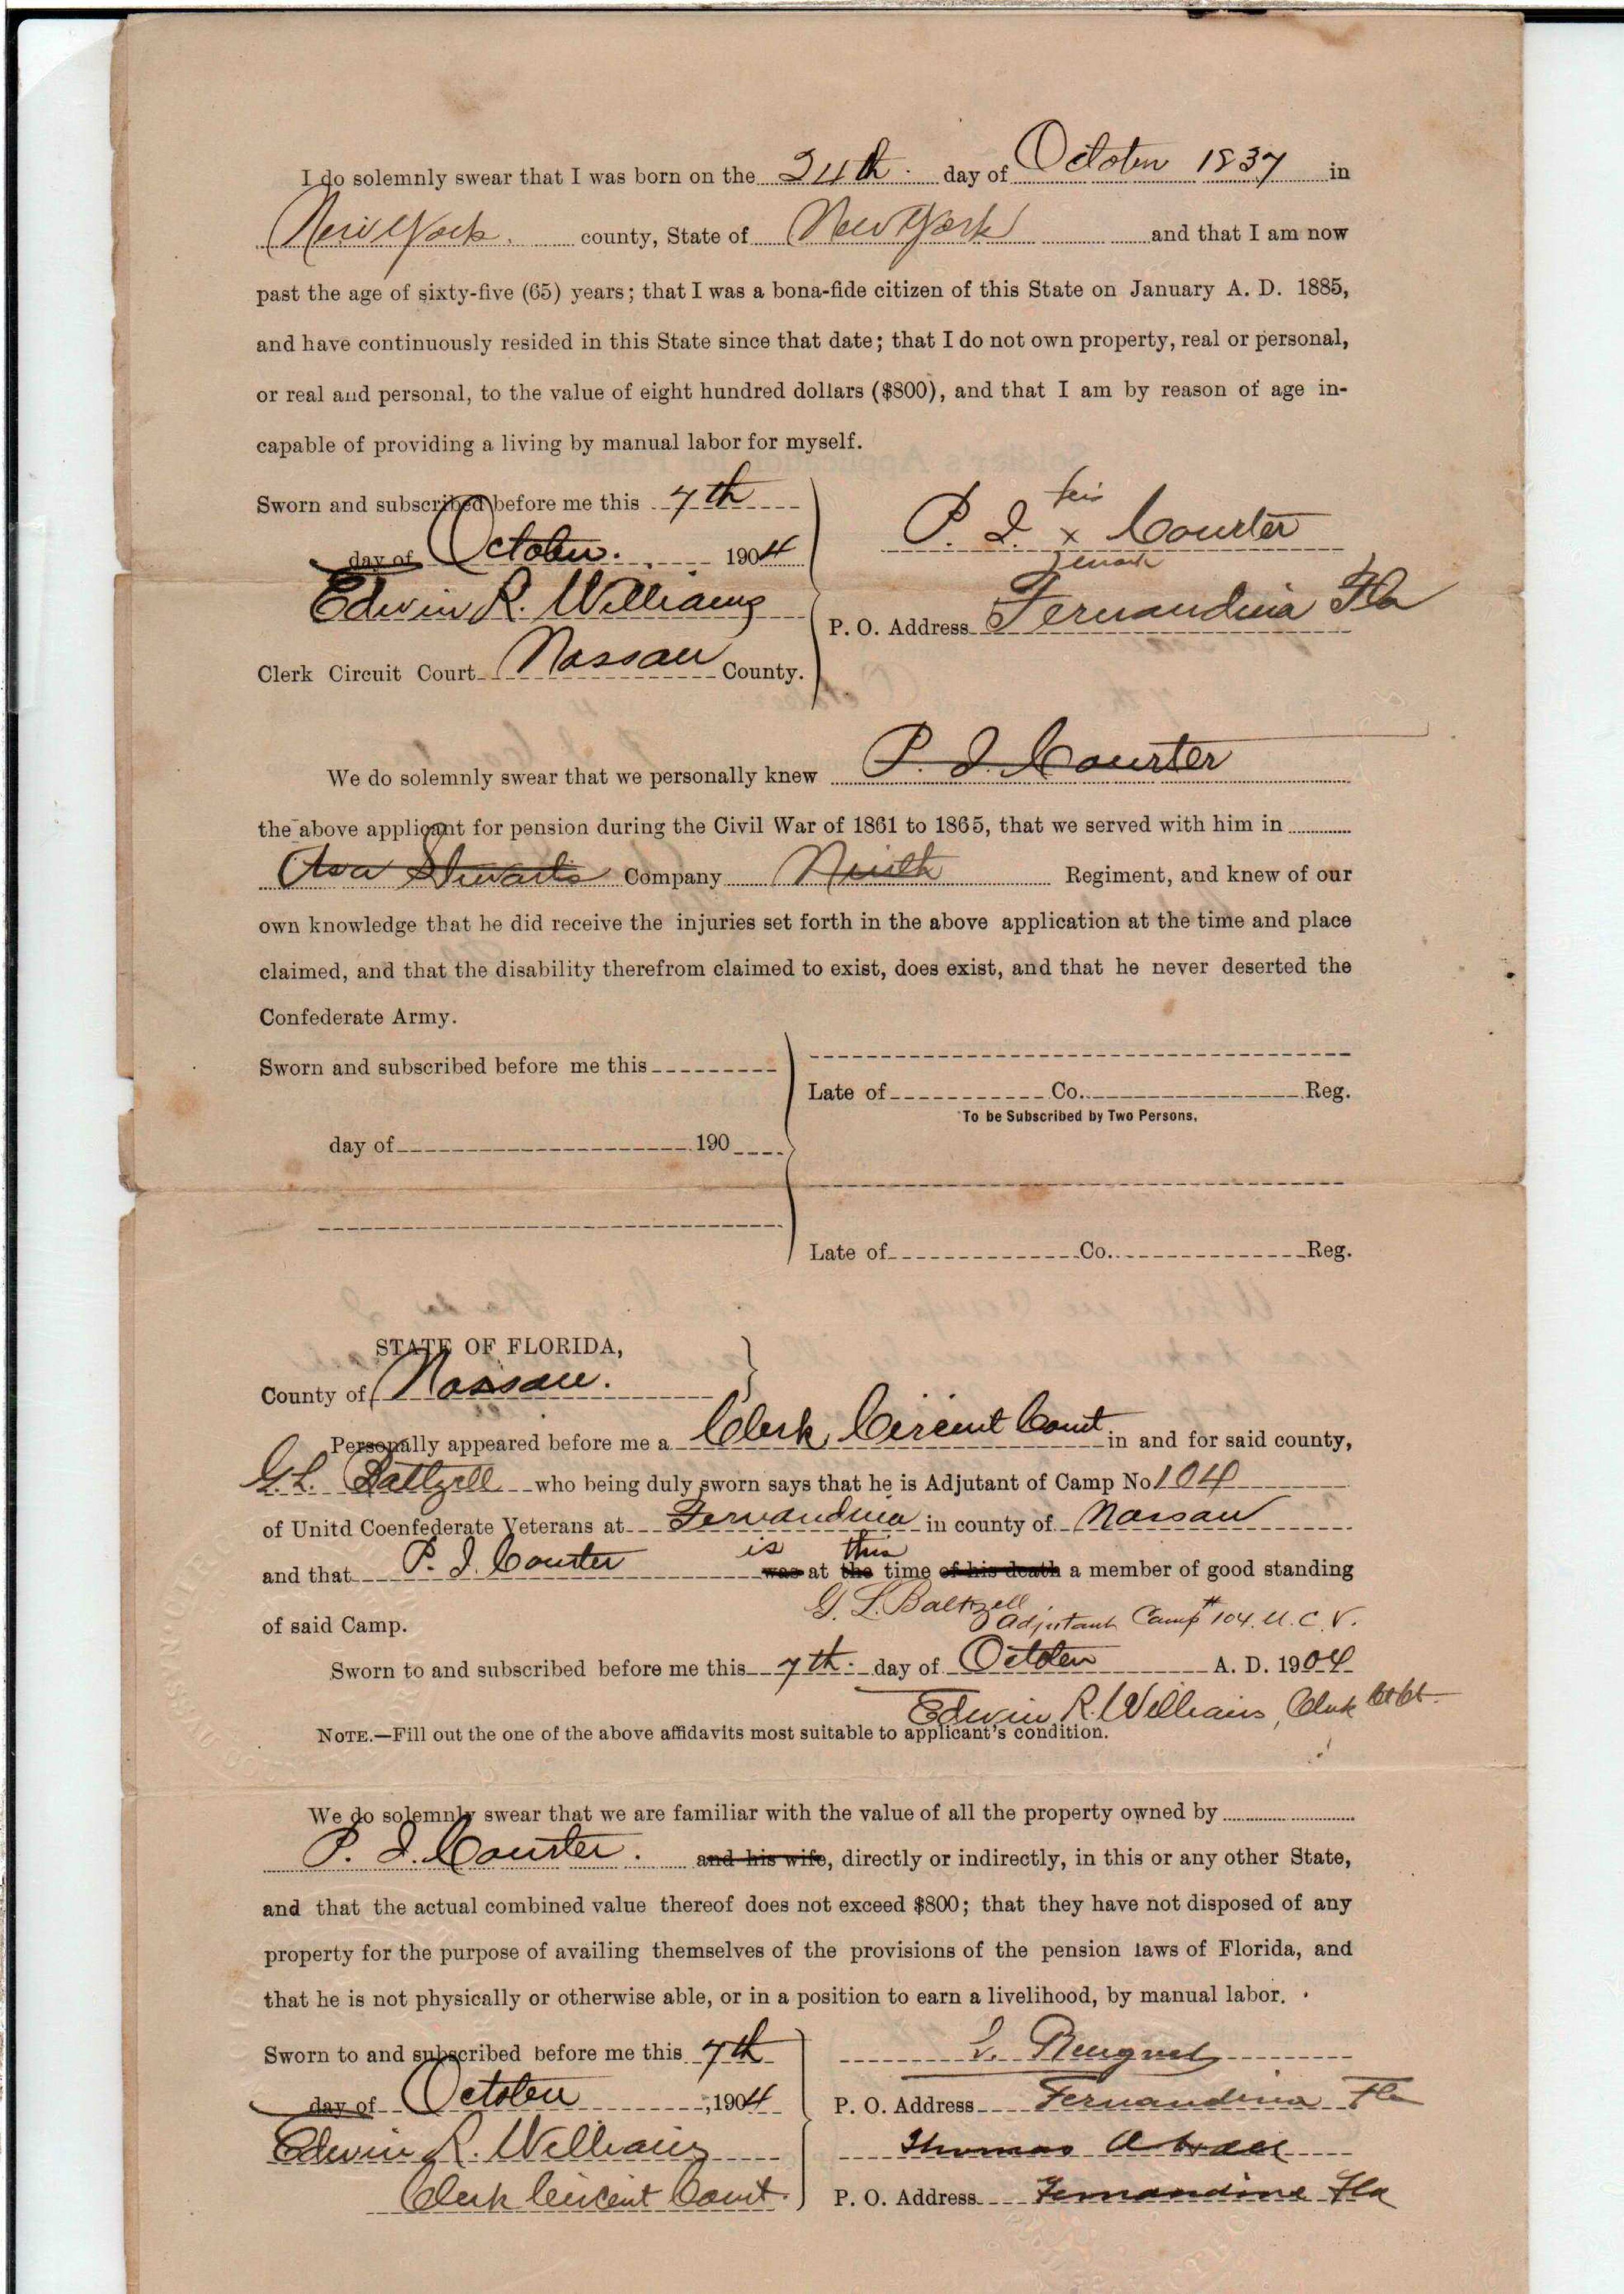 I do solemnly swear that I was born on the 24th. day of October 1837 in
New York. county, State of New York and that I am now
past the age of sixty-five (65) years; that I was a bona-fide citizen of this State on January A. D. 1885,
and have continuously resided in this State since that date; that I do not own property, real or personal,
or real and personal, to the value of eight hundred dollars ($800), and that I am by reason of age in-
capable of providing a living by manual labor for myself.
Sworn and subscribed before me this 7th
day of October. 1904
Edwin R. Williams
Clerk Circuit Court Nassau County.
his
P. I. x Courter
mark
P. O. Address Fernandina Fla
We do solemnly swear that we personally knew P. I. Courter
the above applicant for pension during the Civil War of 1861 to 1865, that we served with him in
Asa Stewarts Company Ninth Regiment, and knew of our
own knowledge that he did receive the injuries set forth in the above application at the time and place
claimed, and that the disability therefrom claimed to exist, does exist, and that he never deserted the
Confederate Army.
Sworn and subscribed before me this
day of 190
Late of Co. Reg.
To be Subscribed by Two Persons.
Late of Co. Reg.
STATE OF FLORIDA,
County of Nassau.
Personally appeared before me a Clerk Circuit Court in and for said county,
G. L. Baltzell who being duly sworn says that he is Adjutant of Camp No 104
of Unitd Coenfederate Veterans at Fernandina in county of Nassau
is this
and that P. I. Courter was at the time of his death a member of good standing
of said Camp.
G. L. Baltzell
Adjutant Camp #104. U. C. V.
Sworn to and subscribed before me this 7th. day of October A. D. 1904
Edwin R. Williams, Clerk Ct Ct
NOTE.—Fill out the one of the above affidavits most suitable to applicant's condition.
We do solemnly swear that we are familiar with the value of all the property owned by
P. I. Courter. and his wife, directly or indirectly, in this or any other State,
and that the actual combined value thereof does not exceed $800; that they have not disposed of any
property for the purpose of availing themselves of the provisions of the pension laws of Florida, and
that he is not physically or otherwise able, or in a position to earn a livelihood, by manual labor.
Sworn to and subscribed before me this 7th
day of October, 1904
Edwin R. Williams
Clerk Circuit Court.
L.
P. O. Address Fernandina Fla
Thomas A
P. O. Address Fernandina Fla